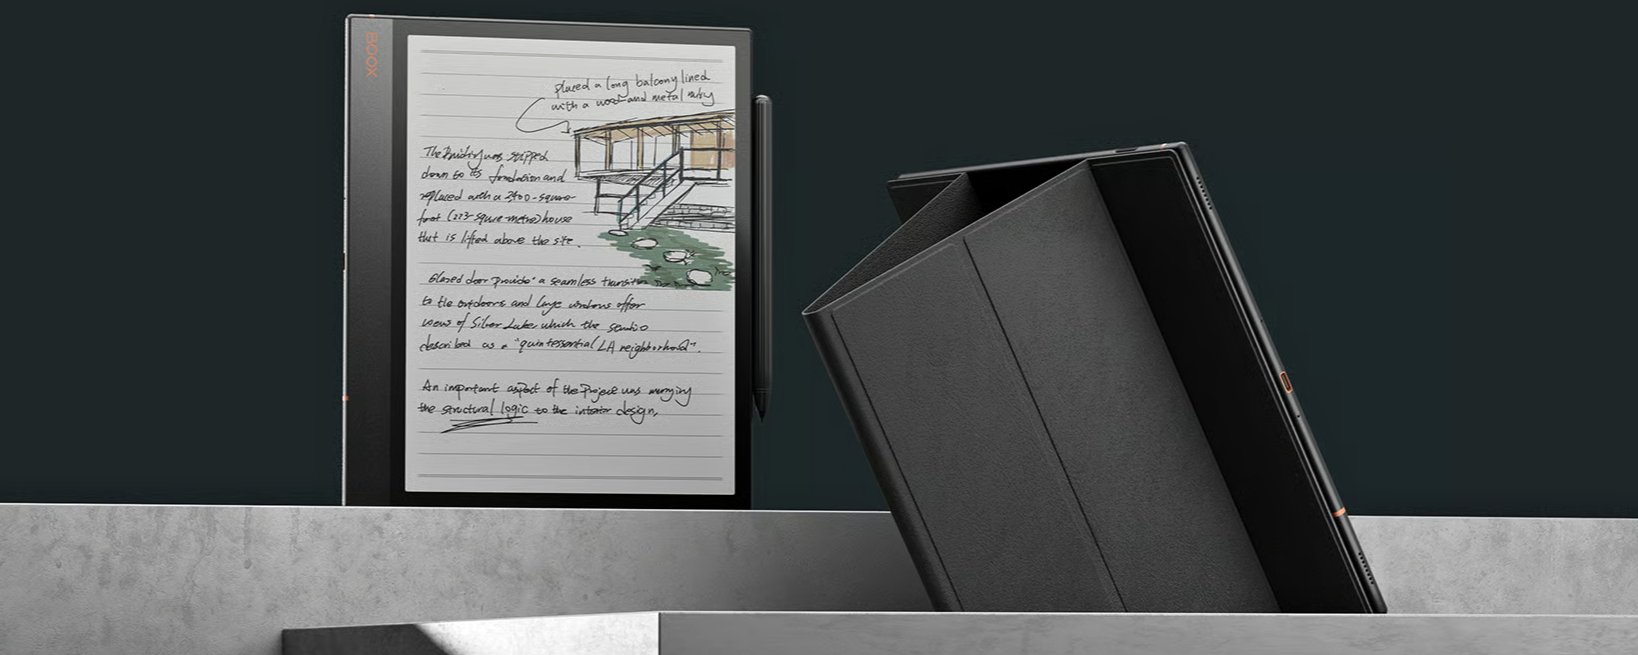 BOOX
placed a long balcony lined
with a wood and metal
The Building was stripped
down to its foundation and
replaced with a 2400-square-
foot (223-square-metre) house
that is lifted above the site.
Glazed door provide a seamless transition
to the outdoors and large windows offer
views of Silver Lake, which the studio
described as a "quintessential LA neighborhood".
An important aspect of the Project was merging
the structural logic to the interior design,